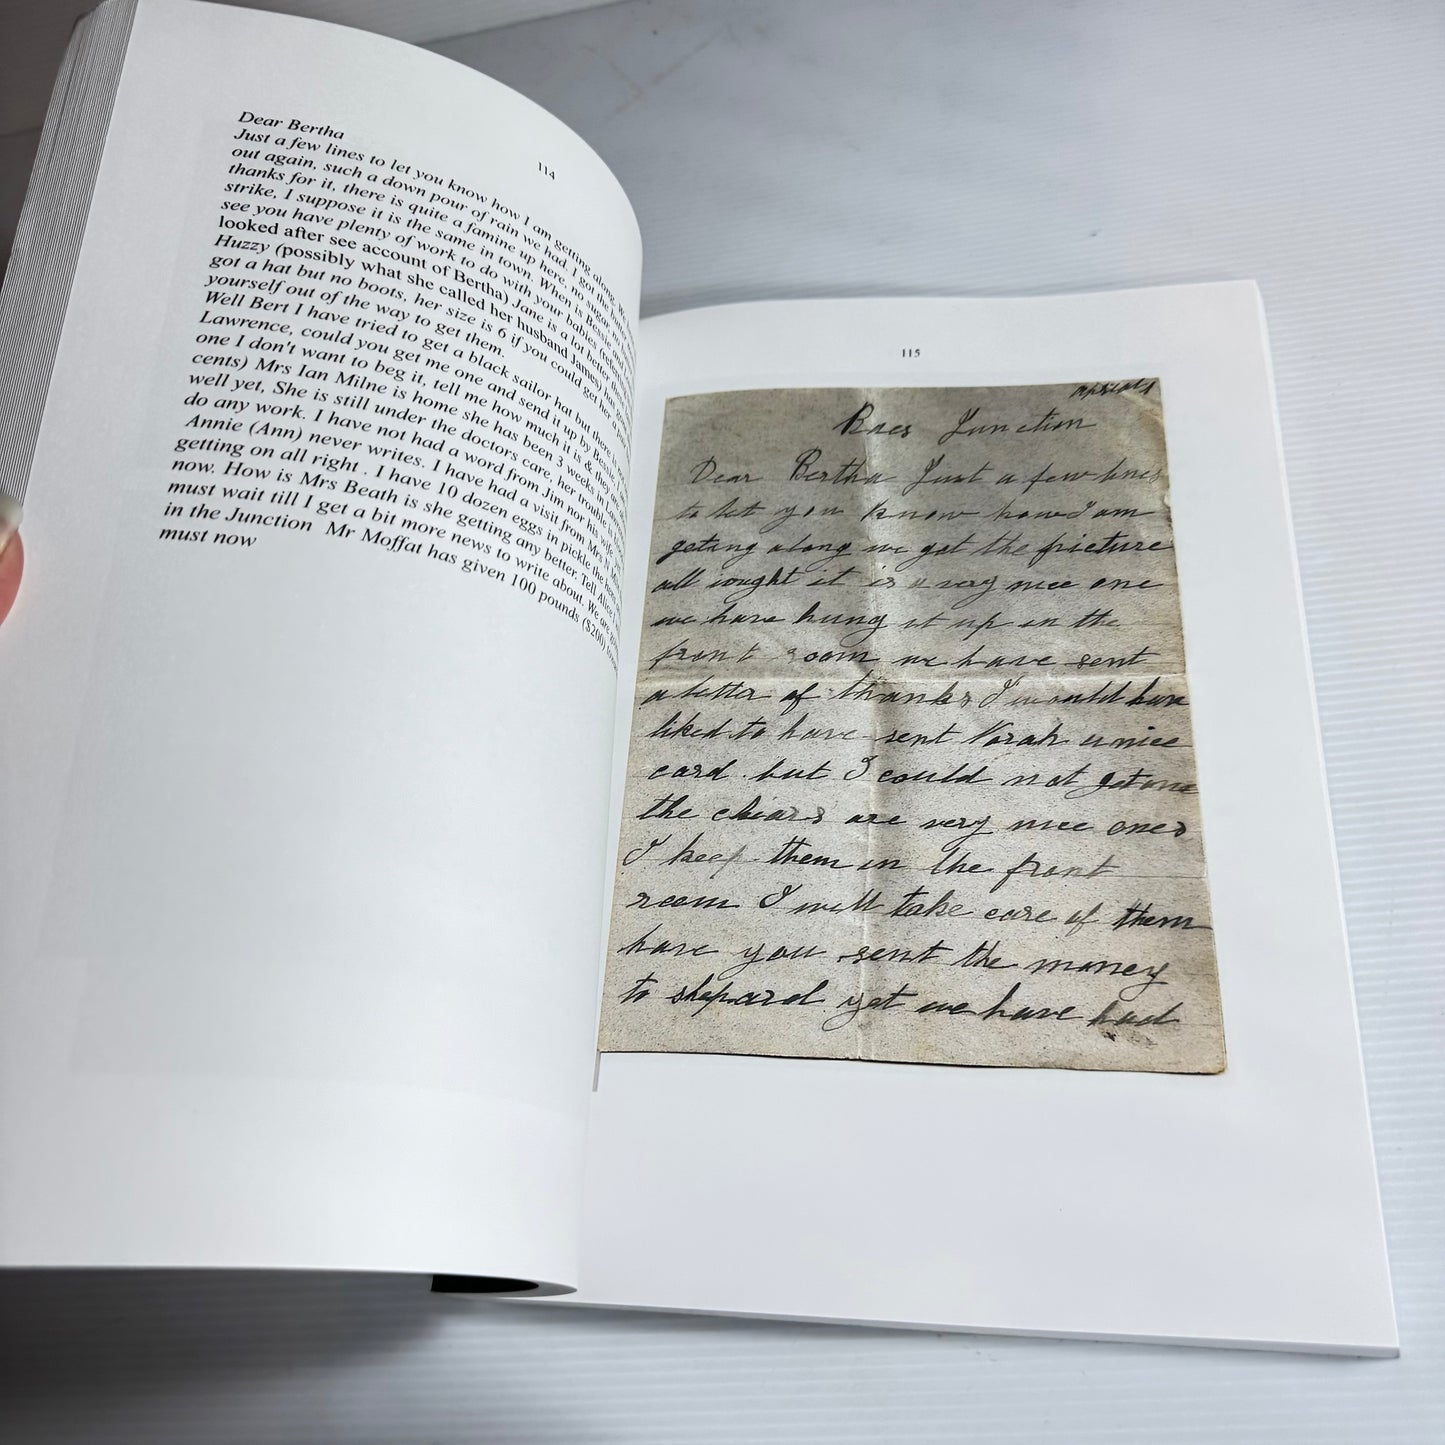 114
Dear Bertha
Just a few lines to let you know how I am getting along.
out again, such a down pour of rain we had. I got the
thanks for it, there is quite a famine up here, no sugar
strike, I suppose it is the same in town. When is Bessie
see you have plenty of work to do with your babies
looked after see account of Bertha) Jane is a lot better
Huzzy (possibly what she called her husband James) has
got a hat but no boots, her size is 6 if you could get her a
yourself out of the way to get them.
Well Bert I have tried to get a black sailor hat but there is
Lawrence, could you get me one and send it up by Bessie
one I don't want to beg it, tell me how much it is &
cents) Mrs Ian Milne is home she has been 3 weeks in
well yet, She is still under the doctors care, her trouble
do any work. I have not had a word from Jim nor his wife
Annie (Ann) never writes. I have had a visit from Mrs N
getting on all right . I have 10 dozen eggs in pickle the
now. How is Mrs Beath is she getting any better. Tell Alice
must wait till I get a bit more news to write about. We are
in the Junction Mr Moffat has given 100 pounds ($200)
must now
115
Races Junction
Dear Bertha Just a few lines
to let you know how I am
geting along we got the picture
all wright it is a very nice one
we have hung it up in the
front room we have sent
a letter of thanks I would have
liked to have sent Norah a nice
card but I could not get one
the chiars are very nice ones
I keep them in the front
room I will take care of them
have you sent the money
to shepard yet we have had